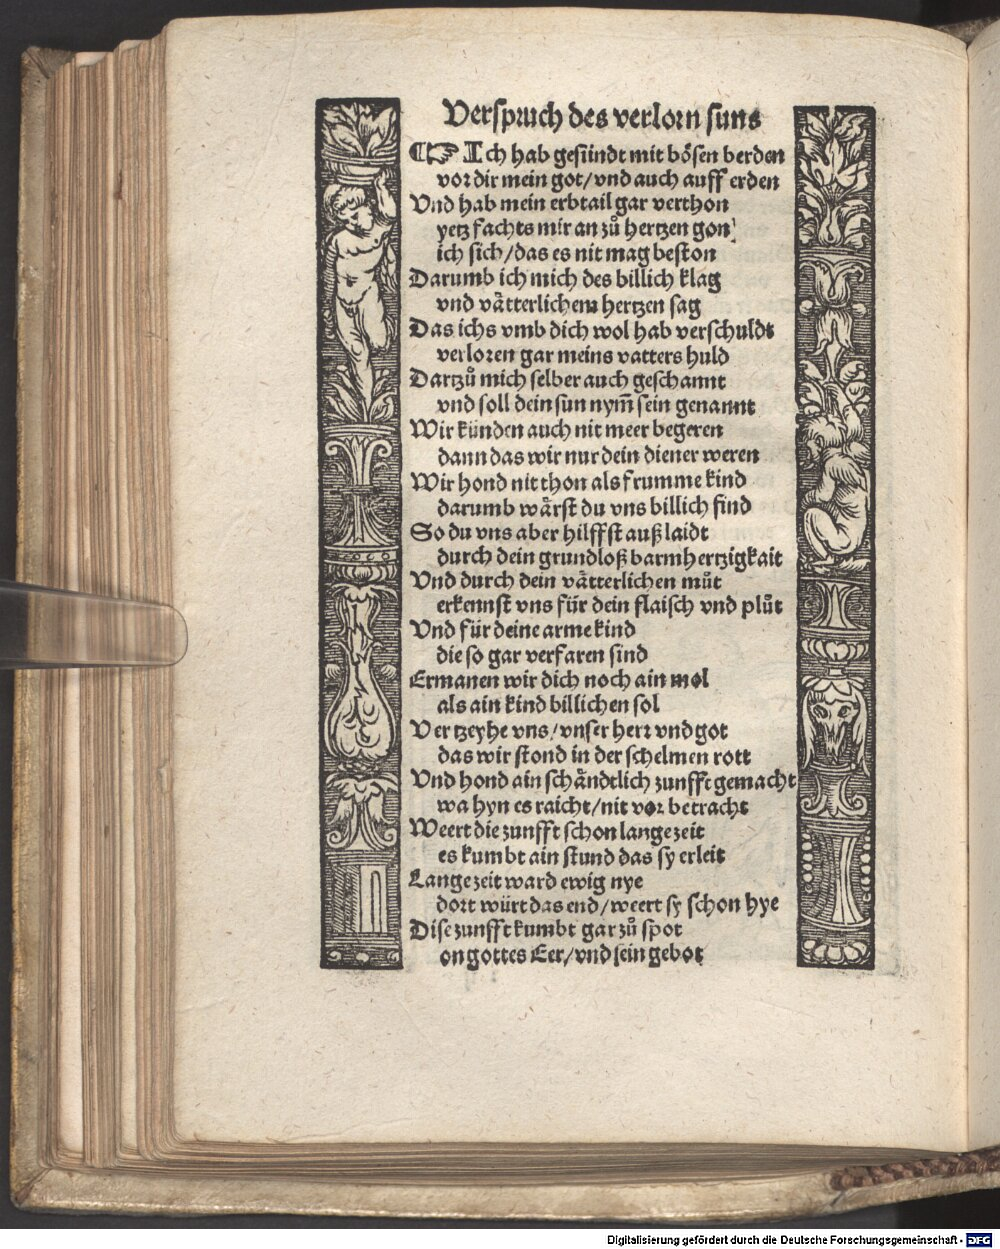 Verspruch des verlorn suns
¶☞ Ich hab gesündt mit bösen berden
vor dir mein got/vnd auch auff erden
Vnd hab mein erbtail gar verthon
yetz fachts mir an zuͦ hertzen gon
ich sich/das es nit mag beston
Darumb ich mich des billich klag
vnd vaͤtterlichem hertzen sag
Das ichs vmb dich wol hab verschuldt
verloren gar meins vatters huld
Dartzuͦ mich selber auch geschannt
vnd soll dein sun nym̄ sein genannt
Wir künden auch nit meer begeren
dann das wir nur dein diener weren
Wir hond nit thon als frumme kind
darumb waͤrst du vns billich find
So du vns aber hilffst auß laidt
durch dein grundloß barmhertzigkait
Vnd durch dein vaͤtterlichen muͦt
erkennst vns für dein flaisch vnd pluͦt
Vnd für deine arme kind
die so gar verfaren sind
Ermanen wir dich noch ain mol
als ain kind billichen sol
Vertzeyhe vns/vnser herr vnd got
das wir stond in der schelmen rott
Vnd hond ain schaͤndtlich zunfft gemacht
wa hyn es raicht/nit vor betracht
Weert die zunfft schon lange zeit
es kumbt ain stund das sy erleit
Lange zeit ward ewig nye
dort würt das end/weert sy schon hye
Dise zunfft kumbt gar zuͦ spot
on gottes Eer/vnd sein gebot
Digitalisierung gefördert durch die Deutsche Forschungsgemeinschaft - DFG